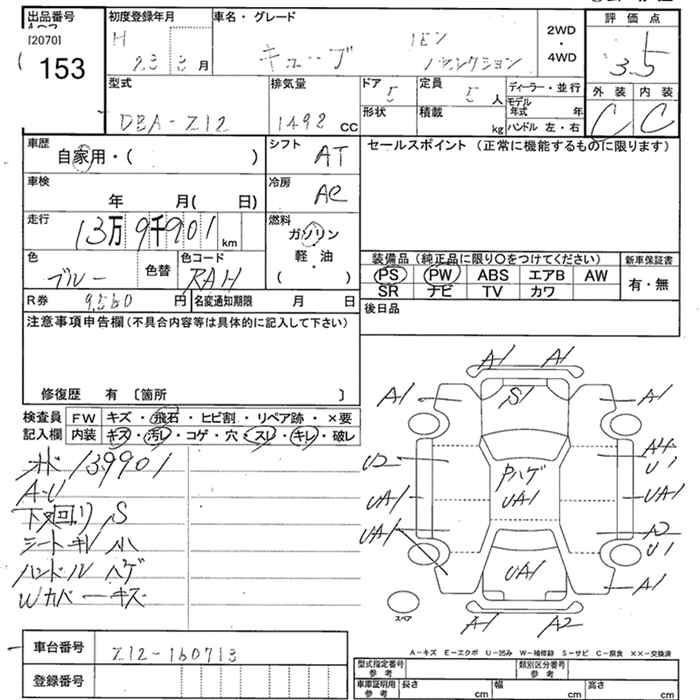 出品番号 初度登録年月 車名・グレード 評価点
[2070]
153
H 23 3月
キューブ 15X Vセレクション
2WD・4WD
3.5
型式 排気量 ドア 定員 ディーラー・並行 外装 内装
DBA-Z12 1492 CC 5 5人
形状 積載 kg
モデル年式 年
ハンドル 左・右
C C
車歴 シフト セールスポイント (正常に機能するものに限ります)
自家用・( ) AT
車検 冷房
年 月( 日) AC
走行 燃料
13万9千901km ガソリン
軽・油
( )
色 色替 色コード
ブルー RAH
装備品 (純正品に限り○をつけてください) 新車保証書
PS PW ABS エアB AW 有・無
SR ナビ TV カワ
R券 9,560円 名変通知期限 月 日 後日品
注意事項申告欄 (不具合内容等は具体的に記入して下さい)
修復歴 有 〔箇所 〕
検査員 FW キズ・飛石・ヒビ割・リペア跡・×要
記入欄 内装 キズ・汚レ・コゲ・穴・スレ・キレ・破レ
139901
A-U
下廻りS
シートキレ小
ハンドルハゲ
Wカバーキズ
A1 A1
A1 S1 A1
U2 Pハゲ A4 U1
UA1 UA1 UA1
UA1 A2 U1
UA1 A1
A1 A2
スペア
A－キズ E－エクボ U－凹み W－補修跡 S－サビ C－腐食 ××－交換済
車台番号 Z12-160713
登録番号
型式指定番号 参考 類別区分番号 参考
車庫証明用 参考 長さ cm 幅 cm 高さ cm